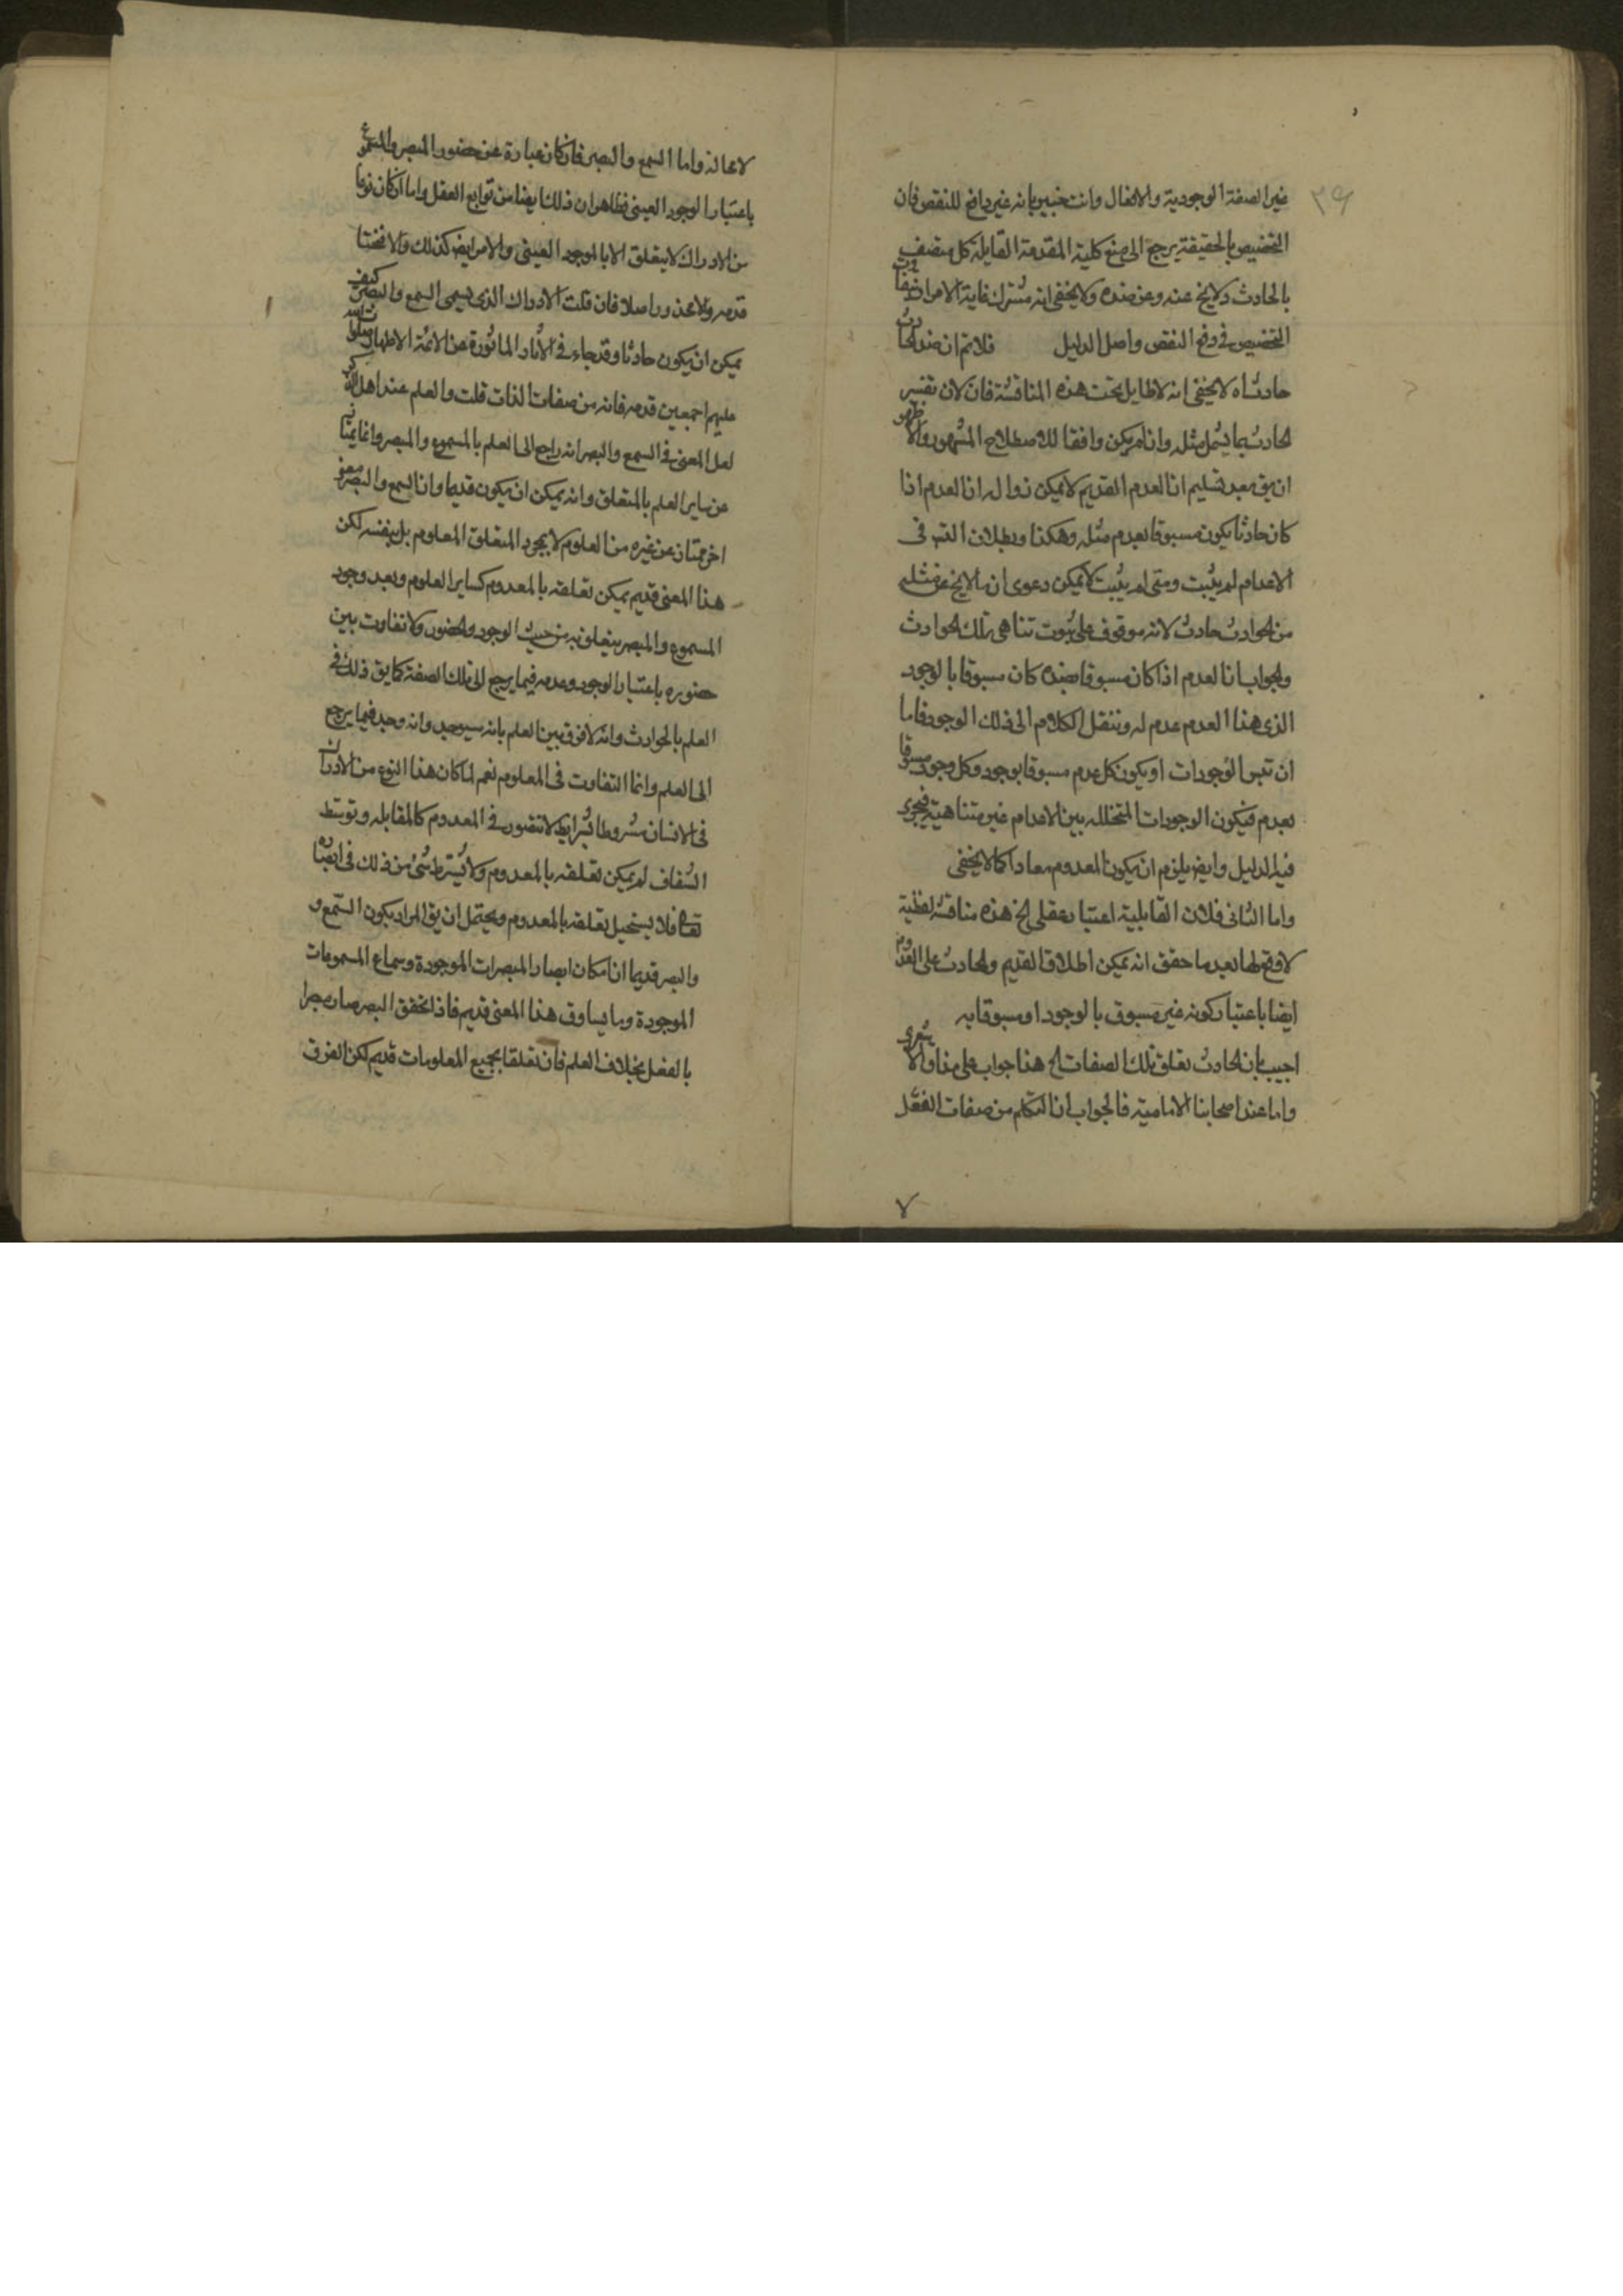 ٣٩
غير الصفة الوجودية والانفعال وانت خبير بانه غير دافع للنقض فان
التخصيص بالحقيقة يرجع الى منع كلية المقدمة القايلة كل متصف
بالحادث لايخ عنه وعن ضده ولا يخفى انه مشترك غاية الامر
التخصيص فى دفع النقض واصل الدليل فلا تم ان ضد الحادث
حادث اه لا يخفى انه لا طايل تحت هذه المناقشة فان لان تفسير
الحادث بما يشمل مثله وان لم يكن وافقا للاصطلاح المشهور والاظهر
ان يق بعد تسليم ان العدم القديم لا يمكن زواله ان العدم اذا
كان حادثا يكون مسبوقا بعدم مثله وهكذا وبطلان التس فى
الاعدام لم يثبت ومتى لم يثبت لا يمكن دعوى ان ما لا يخ عن مثله
من الحوادث حادث لانه موقوف على ثبوت تناهى تلك الحوادث
والجواب ان العدم اذا كان مسبوقا بضده كان مسبوقا بالوجود
الذى هذا العدم عدم له وننقل الكلام الى ذلك الوجود فاما
ان تتس الوجودات او يكون كل عدم مسبوقا بوجود وكل وجود مسبوقا
بعدم فيكون الوجودات المتخلله بين الاعدام غير متناهية فيجرى
فيه الدليل وايض يلزم ان يكون المعدوم معادا كما لا يخفى
واما الثانى فلان القابلية اعتبار عقلى الخ هذه مناقشة لفظية
لا وقع لها بعد ما حقق انه يمكن اطلاق القديم والحادث على العدوم
ايضا باعتبار كونه غير مسبوق بالوجود او مسبوقا به
اجيب بان الحادث تعلق تلك الصفات الخ هذا جواب على مذاق الاشعرى
واما عند اصحابنا الامامية فالجواب ان التكلم من صفات الفعل
٧
لا محالة واما السمع والبصر فان كان عبارة عن حضور المبصر والمسموع
باعتبار الوجود العينى فظاهر ان ذلك ايضا من توابع العقل واما ان كان نوعا
من الادراك لا يتعلق الا بالموجود العينى والامر ايض كذلك والا فنختار
قدمه ولا محذور اصلا فان قلت الادراك الذى يسمى السمع والبصر كيف
يمكن ان يكون حادثا وقد جاء فى الآثار الماثورة عن الائمة الاطهار صلوات الله
عليهم اجمعين قدمه فانه من صفات الذات قلت والعلم عند اهل الذكر
لعل المعنى فى السمع والبصر انه راجع الى العلم بالمسموع والمبصر وانما يمتاز
عن ساير العلم بالمتعلق وانه يمكن ان يكون قديما وان السمع والبصر معنى
اخر ممتاز عن غيره من العلوم لا بمجرد المتعلق المعلوم بل بنفسه لكن
هذا المعنى قديم يمكن تعلقه بالمعدوم كساير العلوم وبعد وجود
المسموع والمبصر يتعلق به من حيث الوجود والحضور ولا تفاوت بين
حضوره باعتبار الوجود وعدمه فيما يرجع الى تلك الصفة كما يق ذلك فى
العلم بالحوادث وانه لا فرق بين العلم بانه سيوجد وانه وجد فيما يرجع
الى العلم وانما التفاوت فى المعلوم نعم لما كان هذا النوع من الادراك
فى الانسان مشروطا بشرايط لا تتصور فى المعدوم كالمقابله وتوسط
الشفاف لم يمكن تعلقه بالمعدوم ولا يشترط شئ من ذلك فى ابصاره
تعالى فلا يستحيل تعلقه بالمعدوم ويحتمل ان يق المراد بكون السمع و
والبصر قديما ان امكان ابصار المبصرات الموجودة وسماع المسموعات
الموجودة وما يساوق هذا المعنى قديم فاذا تحقق البصر صار مبصرا
بالفعل بخلاف العلم فان تعلقا بجميع المعلومات قديم لكن الفرق